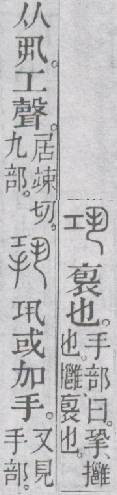 巩
褱也。手部曰。㧬、
也。褱也。
从丮。工聲。居竦切。
九部。
巩或加手。又見
手部。